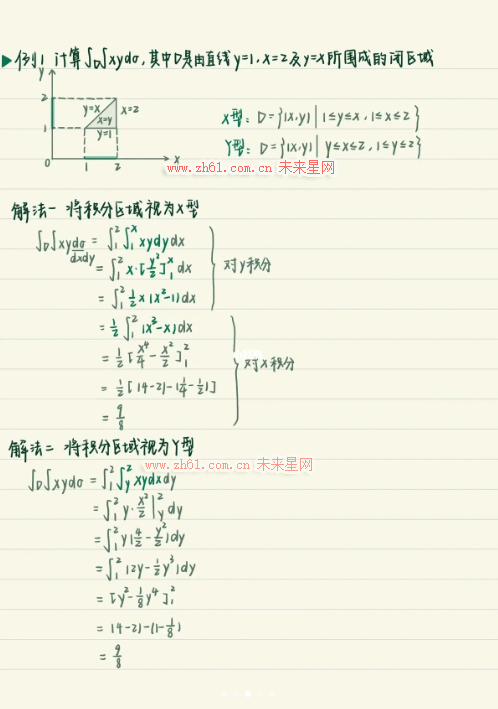 ▶例1 计算∫D∫xydσ,其中D是由直线y=1,x=2及y=x所围成的闭区域
y
2
y=x x=2
x=y
1
y=1
0 1 2 x
X型: D={(x,y)|1≤y≤x,1≤x≤2}
Y型: D={(x,y)|y≤x≤2,1≤y≤2}
www.zh61.com.cn 未来星网
解法一 将积分区域视为X型
∫D∫xydσ = ∫₁²∫₁ˣ xydydx
dxdy
= ∫₁² x·[y²/2]₁ˣ dx
= ∫₁² ½x(x²-1)dx
对y积分
= ½∫₁²(x³-x)dx
= ½[x⁴/4 - x²/2]₁²
对x积分
= ½[(4-2)-(¼-½)]
= 9/8
解法二 将积分区域视为Y型
www.zh61.com.cn 未来星网
∫D∫xydσ = ∫₁²∫y² xydxdy
= ∫₁² y·x²/2|y² dy
= ∫₁² y(4/2 - y²/2)dy
= ∫₁²(2y-½y³)dy
= [y²-⅛y⁴]₁²
= (4-2)-(1-⅛)
= 9/8